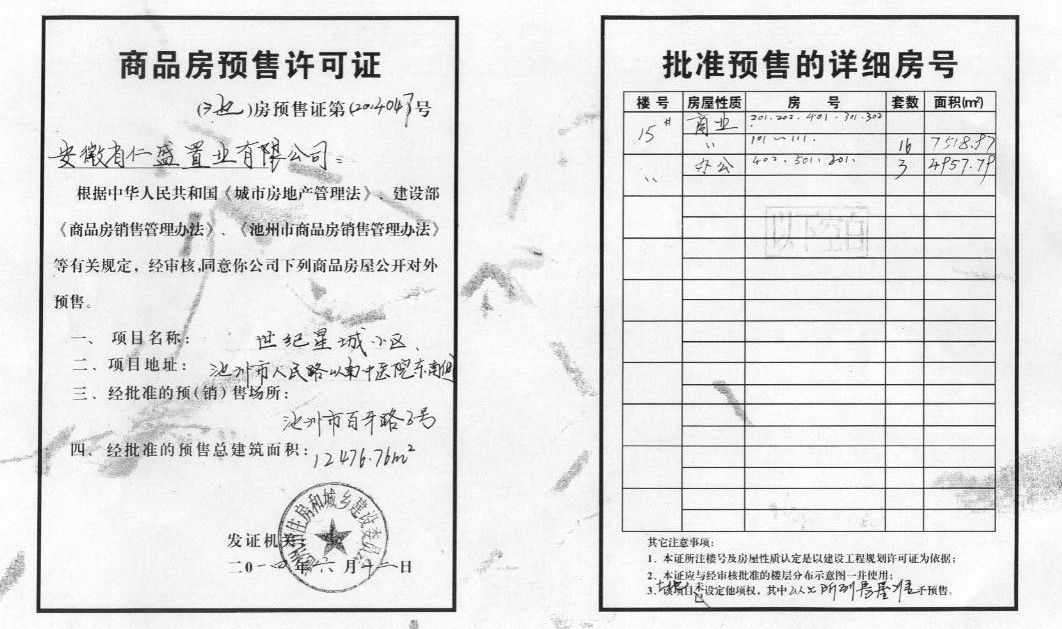 商品房预售许可证
(池)房预售证第(2014047)号
安徽省仁盛置业有限公司:
根据中华人民共和国《城市房地产管理法》、建设部
《商品房销售管理办法》、《池州市商品房销售管理办法》
等有关规定，经审核,同意你公司下列商品房屋公开对外
预售。
一、项目名称：世纪星城小区、
二、项目地址：池州市人民路以南中医院东南侧
三、经批准的预(销)售场所：
池州市百牙路2号
四、经批准的预售总建筑面积：12476.76m²
池州市住房和城乡建设委员会
发证机关：
二0一四年六月十二日
批准预售的详细房号
楼号 房屋性质 房号 套数 面积(m²)
15# 商业 201.202.401.301.302
〃 101～111. 16 7518.97
〃 办公 402.501. 3 4957.79
以下空白
其它注意事项：
1．本证所注楼号及房屋性质认定是以建设工程规划许可证为依据；
2．本证应与经审核批准的楼层分布示意图一并使用；
3．该项目土地已设定他项权，其中以上所列房屋准予预售。